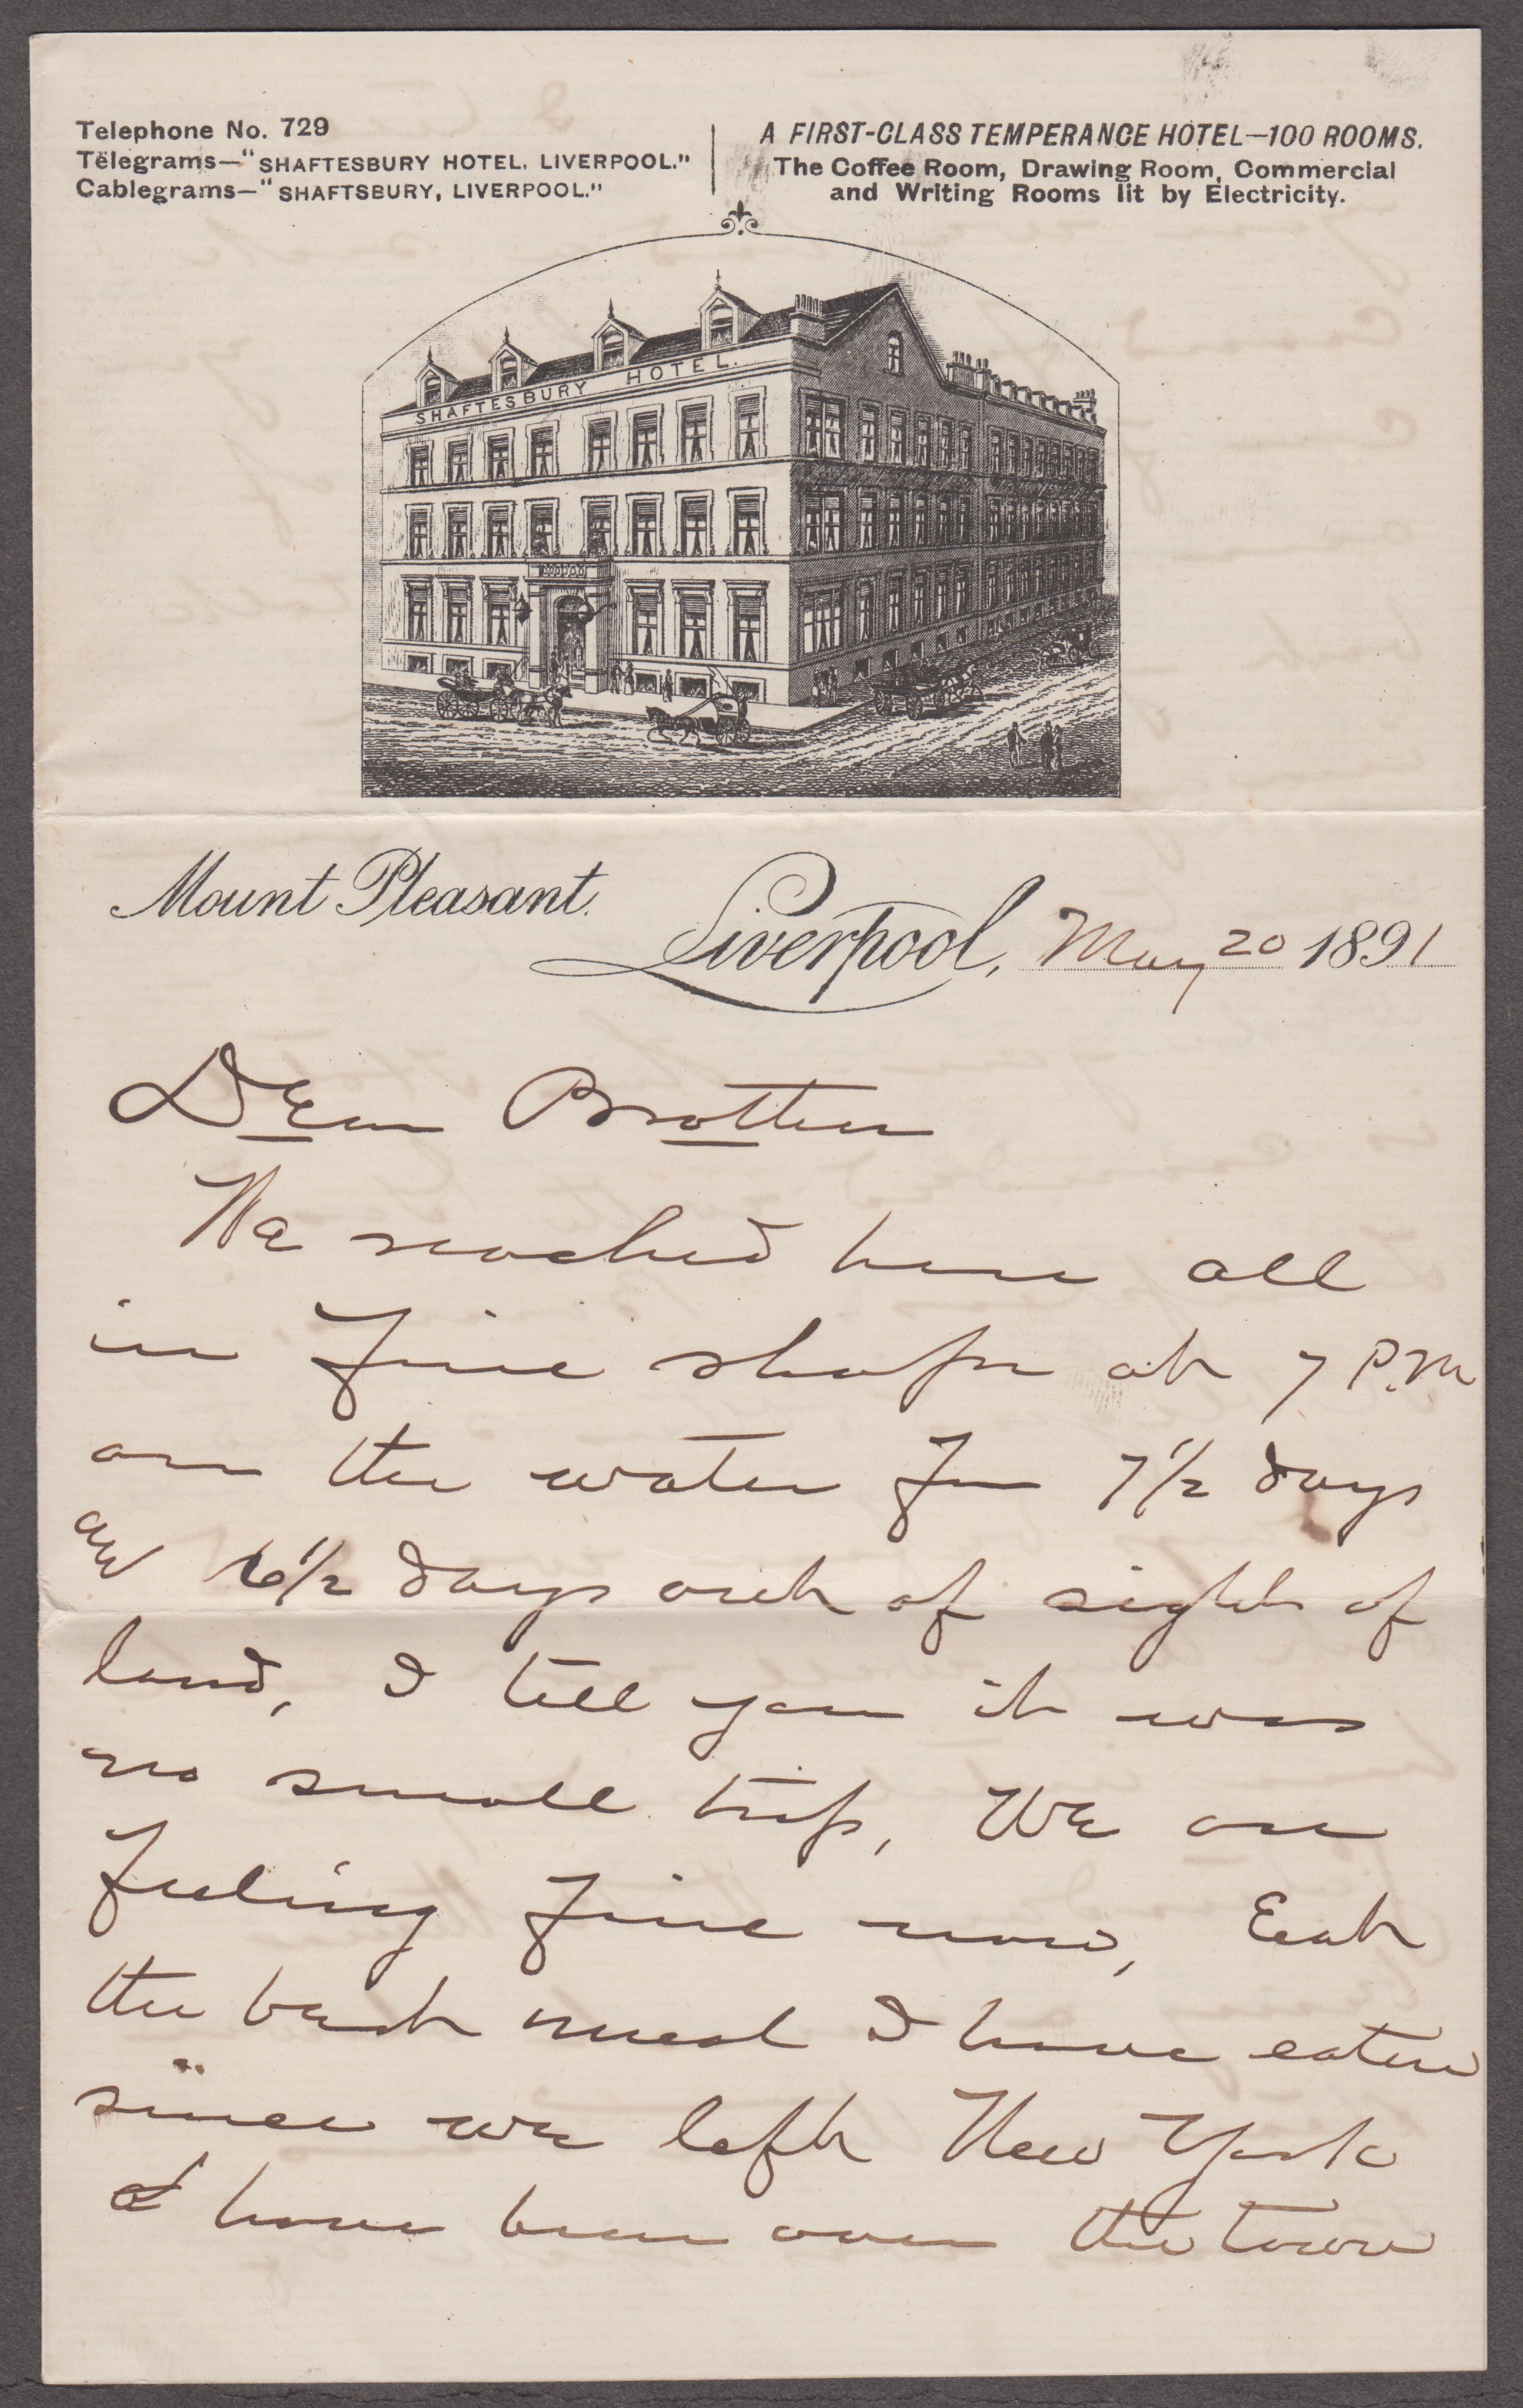 Telephone No. 729
Telegrams—"SHAFTESBURY HOTEL, LIVERPOOL."
Cablegrams—"SHAFTSBURY, LIVERPOOL."
A FIRST-CLASS TEMPERANCE HOTEL—100 ROOMS.
The Coffee Room, Drawing Room, Commercial
and Writing Rooms lit by Electricity.
SHAFTESBURY HOTEL.
Mount Pleasant.
Liverpool, May 20 1891
Dear Brother
We reached here all
in fine shape at 7 P.M
on the water for 7 1/2 days
and 6 1/2 days out of sight of
land, I tell you it was
no small trip, We are
feeling fine now, Eat
the best meal I have eaten
since we left New York
& have been over the town